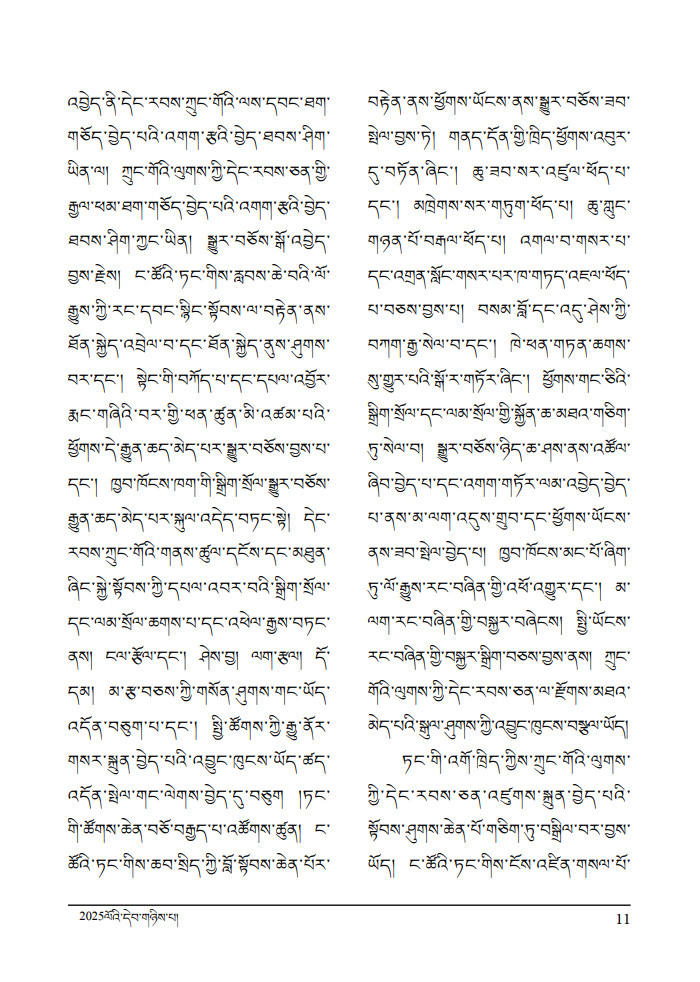 འབྱེད་ནི་དེང་རབས་ཀྲུང་གོའི་ལས་དབང་ཐག་
གཅོད་བྱེད་པའི་འགག་རྩའི་བྱེད་ཐབས་ཤིག་
ཡིན་ལ། ཀྲུང་གོའི་ལུགས་ཀྱི་དེང་རབས་ཅན་གྱི་
རྒྱལ་ཕམ་ཐག་གཅོད་བྱེད་པའི་འགག་རྩའི་བྱེད་
ཐབས་ཤིག་ཀྱང་ཡིན། སྒྱུར་བཅོས་སྒོ་འབྱེད་
བྱས་རྗེས། ང་ཚོའི་ཏང་གིས་རླབས་ཆེ་བའི་ལོ་
རྒྱུས་ཀྱི་རང་དབང་སྙིང་སྟོབས་ལ་བརྟེན་ནས་
ཐོན་སྐྱེད་འབྲེལ་བ་དང་ཐོན་སྐྱེད་ནུས་ཤུགས་
བར་དང་། སྟེང་གི་བཀོད་པ་དང་དཔལ་འབྱོར་
རྨང་གཞིའི་བར་གྱི་ཕན་ཚུན་མི་འཚམ་པའི་
ཕྱོགས་དེ་རྒྱུན་ཆད་མེད་པར་སྒྱུར་བཅོས་བྱས་པ་
དང་། ཁྱབ་ཁོངས་ཁག་གི་སྒྲིག་སྲོལ་སྒྱུར་བཅོས་
རྒྱུན་ཆད་མེད་པར་སྐུལ་འདེད་བཏང་སྟེ། དེང་
རབས་ཀྲུང་གོའི་གནས་ཚུལ་དངོས་དང་མཐུན་
ཞིང་སྐྱེ་སྟོབས་ཀྱི་དཔལ་འབར་བའི་སྒྲིག་སྲོལ་
དང་ལམ་སྲོལ་ཆགས་པ་དང་འཕེལ་རྒྱས་བཏང་
ནས། ངལ་རྩོལ་དང་། ཤེས་བྱ། ལག་རྩལ། དོ་
དམ། མ་རྩ་བཅས་ཀྱི་གསོན་ཤུགས་གང་ཡོད་
འདོན་བཅུག་པ་དང་། སྤྱི་ཚོགས་ཀྱི་རྒྱུ་ནོར་
གསར་སྐྲུན་བྱེད་པའི་འབྱུང་ཁུངས་ཡོད་ཚད་
འདོན་སྤེལ་གང་ལེགས་བྱེད་དུ་བཅུག །ཏང་
གི་ཚོགས་ཆེན་བཅོ་བརྒྱད་པ་འཚོགས་ཚུན། ང་
ཚོའི་ཏང་གིས་ཆབ་སྲིད་ཀྱི་བློ་སྟོབས་ཆེན་པོར་
བརྟེན་ནས་ཕྱོགས་ཡོངས་ནས་སྒྱུར་བཅོས་ཟབ་
སྤེལ་བྱས་ཏེ། གནད་དོན་གྱི་ཁྲིད་ཕྱོགས་འབུར་
དུ་བཏོན་ཞིང་། ཆུ་ཟབ་སར་འཛུལ་ཕོད་པ་
དང་། མཁྲེགས་སར་གཏུག་ཕོད་པ། ཆུ་ཀླུང་
གཉན་པོ་བརྒལ་ཕོད་པ། འགལ་བ་གསར་པ་
དང་འགྲན་སློང་གསར་པར་ཁ་གཏད་འཇལ་ཕོད་
པ་བཅས་བྱས་པ། བསམ་བློ་དང་འདུ་ཤེས་ཀྱི་
བཀག་རྒྱ་སེལ་བ་དང་། ཁེ་ཕན་གཏན་ཆགས་
སུ་གྱུར་པའི་སྒོ་ར་གཏོར་ཞིང་། ཕྱོགས་གང་ཅིའི་
སྒྲིག་སྲོལ་དང་ལམ་སྲོལ་གྱི་སྐྱོན་ཆ་མཐའ་གཅིག་
ཏུ་སེལ་བ། སྒྱུར་བཅོས་ཉིད་ཆ་ཤས་ནས་འཚོལ་
ཞིབ་བྱེད་པ་དང་འགག་གཏོར་ལམ་འབྱེད་བྱེད་
པ་ནས་མ་ལག་འདུས་གྲུབ་དང་ཕྱོགས་ཡོངས་
ནས་ཟབ་སྤེལ་བྱེད་པ། ཁྱབ་ཁོངས་མང་པོ་ཞིག་
ཏུ་ལོ་རྒྱུས་རང་བཞིན་གྱི་འཕོ་འགྱུར་དང་། མ་
ལག་རང་བཞིན་གྱི་བསྐྱར་བཞེངས། སྤྱི་ཡོངས་
རང་བཞིན་གྱི་བསྐྱར་སྒྲིག་བཅས་བྱས་ནས། ཀྲུང་
གོའི་ལུགས་ཀྱི་དེང་རབས་ཅན་ལ་རྫོགས་མཐའ་
མེད་པའི་སྒུལ་ཤུགས་ཀྱི་འབྱུང་ཁུངས་བསྩལ་ཡོད།
ཏང་གི་འགོ་ཁྲིད་ཀྱིས་ཀྲུང་གོའི་ལུགས་
ཀྱི་དེང་རབས་ཅན་འཛུགས་སྐྲུན་བྱེད་པའི་
སྟོབས་ཤུགས་ཆེན་པོ་གཅིག་ཏུ་བསྒྲིལ་བར་བྱས་
ཡོད། ང་ཚོའི་ཏང་གིས་ངོས་འཛིན་གསལ་པོ་
2025ལོའི་དེབ་གཉིས་པ།
11